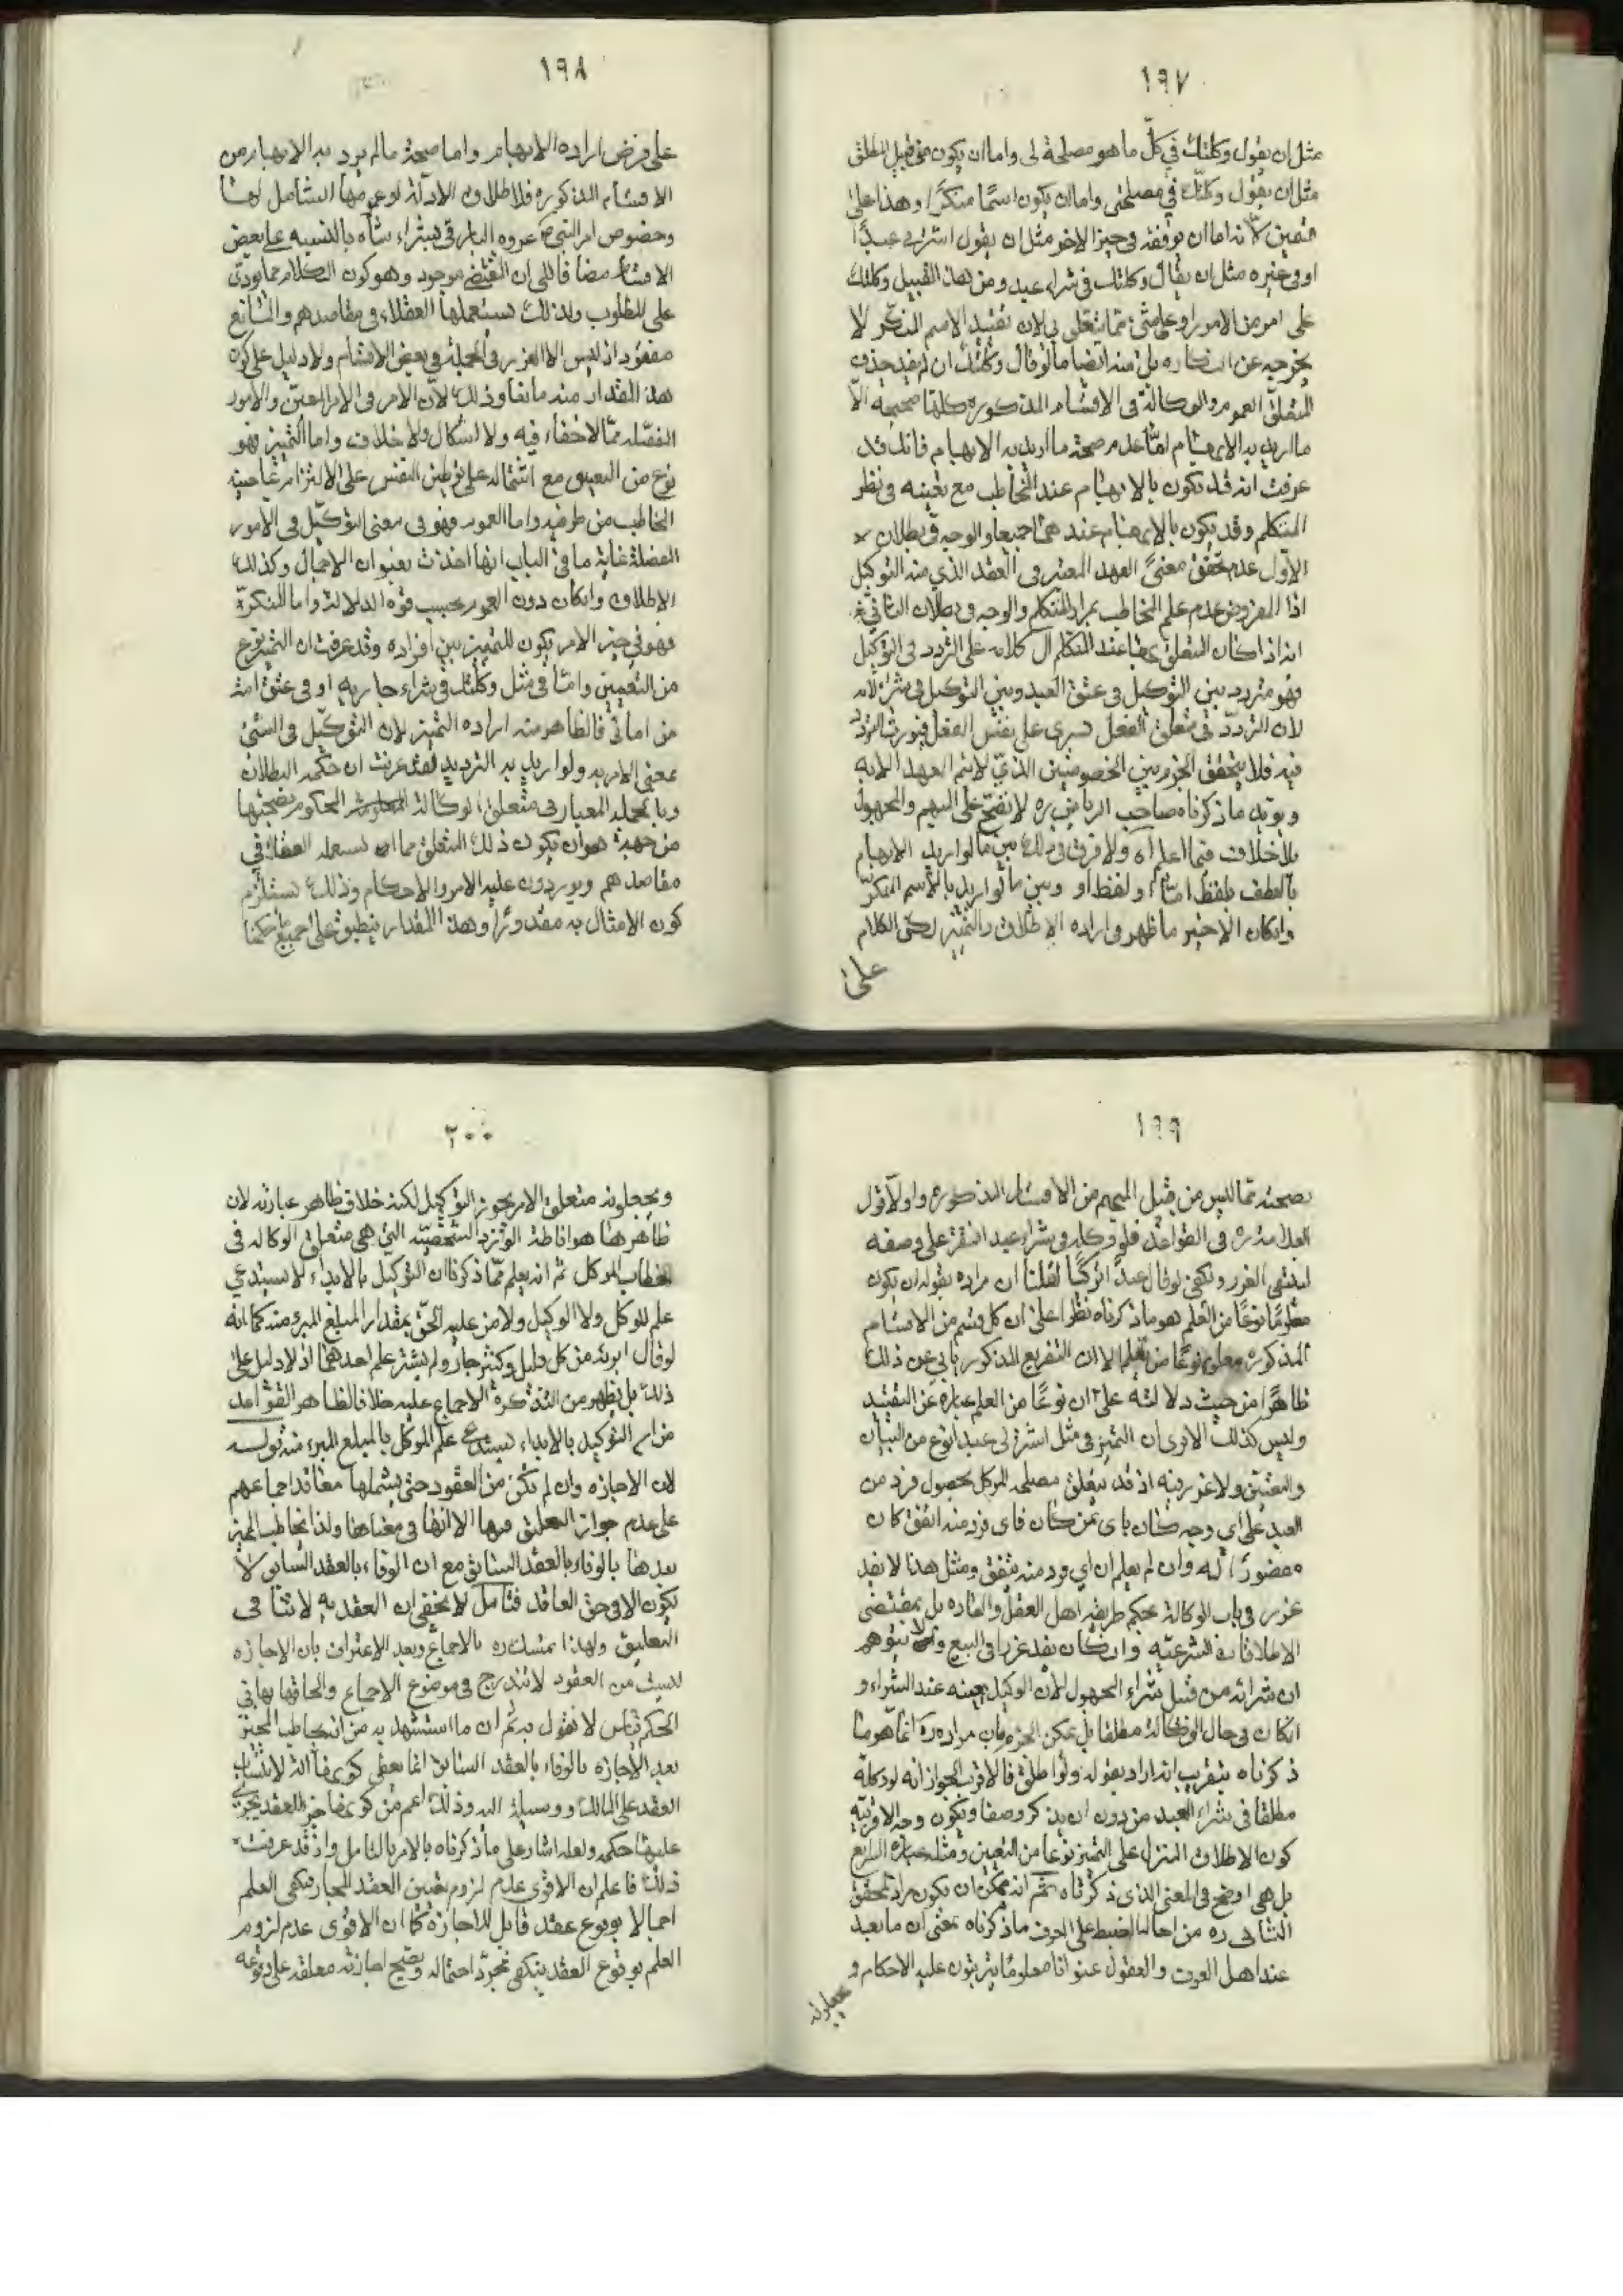 ١٩٧
مثل ان يقول وكلتك في كلّ ما هو مصلحة لى واما ان يكون من قبيل المطلق
مثل ان يقول وكلتك في مصلحتى واما ان يكون اسمًا منكرًا وهذا على
قسمين لانه اما ان يوقفه فى حيز الاخر مثل ان يقول اشترلى عبدًا
او فى غيره مثل ان يقال وكلتك فى شراء عبد ومن هذا القبيل وكلتك
على امر من الامور او على شىء مما يتعلق بى لان تقييد الاسم المنكّر لا
يخرجه عن النكاره بل منه ايضا ما لو قال وكلتك ان لم يفد حذف
المتعلق العموم والوكالة فى الاقسام المذكوره كلها صحيحة الّا
ما اريد به الابهام امّا عدم صحة ما اريد به الابهام فانك قد
عرفت انه قد يكون بالابهام عند المخاطب مع تعينه فى نظر
المتكلم وقد يكون بالابهام عندهما جميعا والوجه فى بطلان
الاوّل عدم تحقق معنى العهد المعتبر فى العقد الذي منه التوكيل
اذا المفروض عدم علم المخاطب بمراد المتكلم والوجه فى بطلان الثانى
انه اذا كان المتعلق مبهما عند المتكلم آل كلامه على التردد فى التوكيل
فهو متردد بين التوكيل فى عتق العبد وبين التوكيل فى شرائه
لان التردّد فى متعلق الفعل يسرى على نفس الفعل فيورث التردد
فيه فلا يتحقق الجزم بين الخصوصيتين الذي لا يتم العهد الا به
ويؤيد ما ذكرناه صاحب الرياض ره لا تصح على المبهم والمجهول
بلا خلاف فيما اعلم اه ولا فرق فى ذلك بين ما لو اريد الابهام
بالعطف بلفظ امّا او لفظ او وبين ما لو اريد بالاسم المنكّر
وان كان الاخير ما ظهر فى اراده الاطلاق والتميز لكن الكلام
على
١٩٨
على فرض اراده الابهام واما صحة ما لم يرد به الابهام من
الاقسام المذكوره فلاطلاق الادلة او عمومها الشامل لها
وخصوص امر النبى ص عروه البارقى بشراء شاة بالنسبه على بعض
الاقسام مضافا الى ان المقتضى موجود وهو كون الكلام مما يؤدّى
على المطلوب ولذلك يستعملها العقلاء فى مقاصدهم والمانع
مفقود اذ ليس الا الغرر فى الجملة فى بعض الاقسام ولا دليل على كون
هذا المقدار منه مانعا وذلك لانّ الامر فى الامر المعيّن والامور
المفصّله ممّا لا خفاء فيه ولا اشكال ولا خلاف واما التميز فهو
نوع من التعيين مع اشتماله على توطين النفس على الالتزام بما عينه
المخاطب من طرفيه واما العموم فهو فى معنى التوكيل فى الامور
المفصّلة غاية ما فى الباب انها اخذت بعنوان الاجمال وكذلك
الاطلاق وان كان دون العموم بحسب قوة الدلالة واما النكرة
فهو في حيز الامر يكون للتميز بين افراده وقد عرفت ان التميز نوع
من التعيين وامّا فى مثل وكلتك فى شراء جاريه او فى عتق امة
من امائى فالظاهر منه اراده التميز لان التوكيل فى الشىء
بمعنى الامر به ولو اريد به الترديد فقد عرفت ان حكمه البطلان
وبالجمله المعيار فى متعلق الوكالة المحكوم بصحتها
من جهته هو ان يكون ذلك المتعلق مما يستعمله العقلاء في
مقاصدهم ويوردون عليه الامر والاحكام وذلك يستلزم
كون الامتثال به مقدورًا وهذا المقدار ينطبق على جميع ما حكمنا
١٩٩
بصحته مما ليس من قبيل المبهم من الاقسام المذكوره واولا قول
العلامة ره فى القواعد فلو وكله فى شراء عبد افتقر على وصفه
لينتفى الغرر ويكفى لو قال عبدًا تركيًا لقلنا ان مراده بقوله ان يكون
معلومًا نوعًا من العلم هو ما ذكرناه نظرا على ان كل قسم من الاقسام
المذكوره معلوم نوعًا من العلم الا ان التفريع المذكور يابى عن ذلك
ظاهرًا من حيث دلالته على ان نوعًا من العلم عباره عن التقييد
وليس كذلك الا ترى ان التميز فى مثل اشترلى عبدا نوع من البيان
والتعيين ولا غرر فيه اذ قد يتعلق مصلحة الموكل بحصول فرد من
العبد على اي وجه كان باى ثمن كان فاى فرد منه اتفق كان
مقصودًا له وان لم يعلم ان اي فرد منه يتفق ومثل هذا لا يعد
غررا فى باب الوكالة بحكم طريقة اهل العقل والعاده بل بمقتضى
الاطلاقات الشرعيّه وان كان يعد غررا فى البيع ولا يتوهم
ان شرائه من قبيل شراء المجهول لان الوكيل يعينه عند الشراء و
انكان فى حال الوكالة مطلقا بل يمكن الجزم بان مراده ره انما هو ما
ذكرناه بتقريب انه اراد بقوله ولو اطلق فالاقرب الجواز انه لو وكله
مطلقا فى شراء العبد من دون ان يذكر وصفا ويكون وجه الاقربيّه
كون الاطلاق المنزل على التميز نوعا من التعيين ومثله عبارة الشرايع
بل هى اوضح فى المعنى الذى ذكرناه ثم انه يمكن ان يكون مراد المحقق
الثانى ره من احالة الضبط على العرف ما ذكرناه بمعنى ان ما يعد
عند اهل العرف والعقول عنوانا معلومًا يرتبون عليه الاحكام و
يجعلونه
٢٠٠
ويجعلونه متعلق الامر يجوز التوكيل لكنه خلاف ظاهر عبارته لان
ظاهرها هو اناطة الشخصيّه التى هى متعلق الوكاله فى
خطاب الموكل ثم انه يعلم ممّا ذكرنا ان التوكيل بالابراء لا يستدعي
علم الموكل ولا الوكيل ولا من عليه الحقّ بمقدار المبلغ المبرء منه كما انه
لو قال ابرئه من كل قليل وكثير جاز ولم يشترط علم احدهما اذ لا دليل على
ذلك بل يظهر من التذكرة الاجماع عليه خلافا لظاهر القواعد
من ان التوكيل بالابراء يستدعى علم الموكل بالمبلغ المبرء منه قوله
لان الاجازه وان لم تكن من العقود حتى يشملها معاقد اجماعهم
على عدم جواز التعليق فيها الا انها فى معناها ولذا يخاطب المجيز
بعدها بالوفاء بالعقد السابق مع ان الوفاء بالعقد السابق لا
يكون الا فى حق العاقد فتامل لا يخفى ان العقديه لا تنافى
التعليق ولهذا تمسك ره بالاجماع وبعد الاعتراف بان الاجازه
ليست من العقود لا تندرج فى موضوع الاجماع والحاقها بها فى
الحكم قياس لا نقول به ثم ان ما استشهد به من ان يخاطب المجيز
بعد الاجازه بالوفاء بالعقد السابق انما يعطى كونها آلة لانتساب
العقد على المالك ووسيلة اليه وذلك اعم من كونها جزء العقد يجرى
عليها حكمه ولعله اشار على ما ذكرناه بالامر بالتامل واذ قد عرفت
ذلك فاعلم ان الاقوى عدم لزوم تعيين العقد المجاز فيكفى العلم
اجمالا بوقوع عقد قابل للاجازة كما ان الاقوى عدم لزوم
العلم بوقوع العقد فيكفى مجرد احتماله وتصح اجازته معلقه على وقوعه